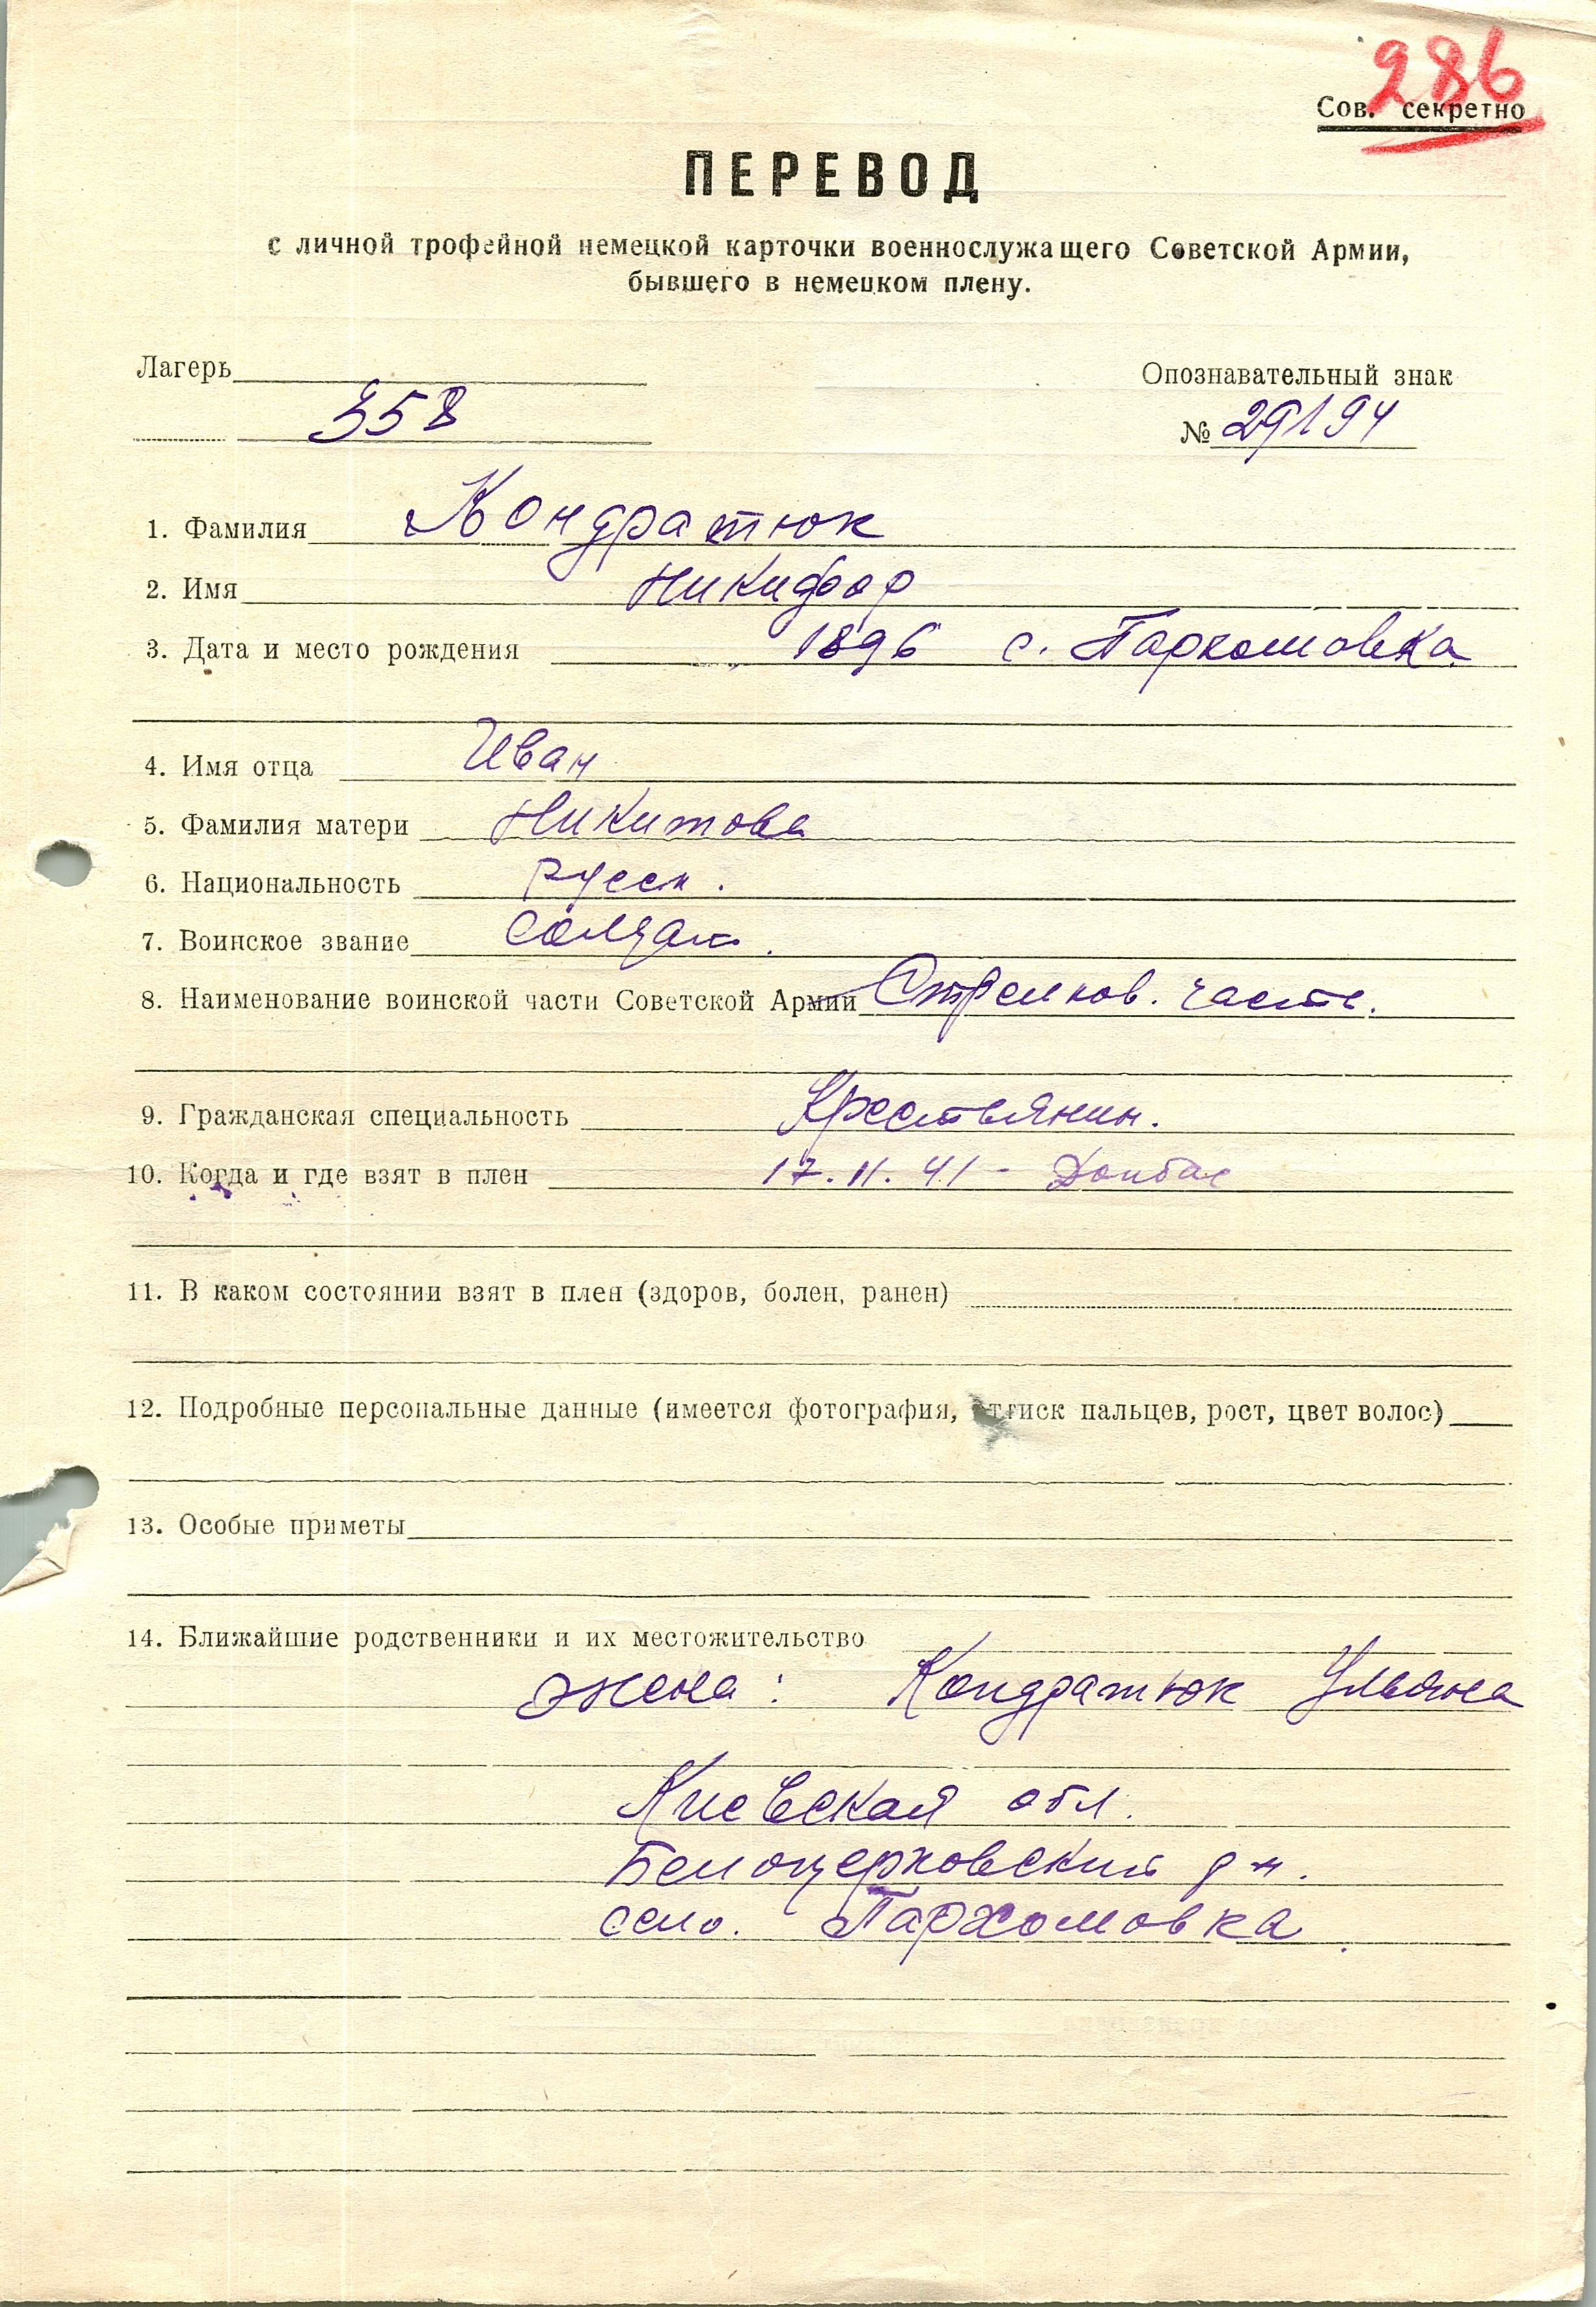 286
Сов. секретно
ПЕРЕВОД
с личной трофейной немецкой карточки военнослужащего Советской Армии,
бывшего в немецком плену.
Лагерь
Опознавательный знак
358
№ 29194
1. Фамилия Кондратюк
2. Имя Никифор
3. Дата и место рождения 1896 с. Пархомовка
4. Имя отца Иван
5. Фамилия матери Никитова
6. Национальность Русск.
7. Воинское звание Солдат.
8. Наименование воинской части Советской Армии Стрелков. часть.
9. Гражданская специальность Крестьянин.
10. Когда и где взят в плен 17.11.41 - Донбас
11. В каком состоянии взят в плен (здоров, болен, ранен)
12. Подробные персональные данные (имеется фотография, оттиск пальцев, рост, цвет волос)
13. Особые приметы
14. Ближайшие родственники и их местожительство
жена: Кондратюк Ульяна
Киевская обл.
Белоцерковский р-н.
село. Пархомовка.